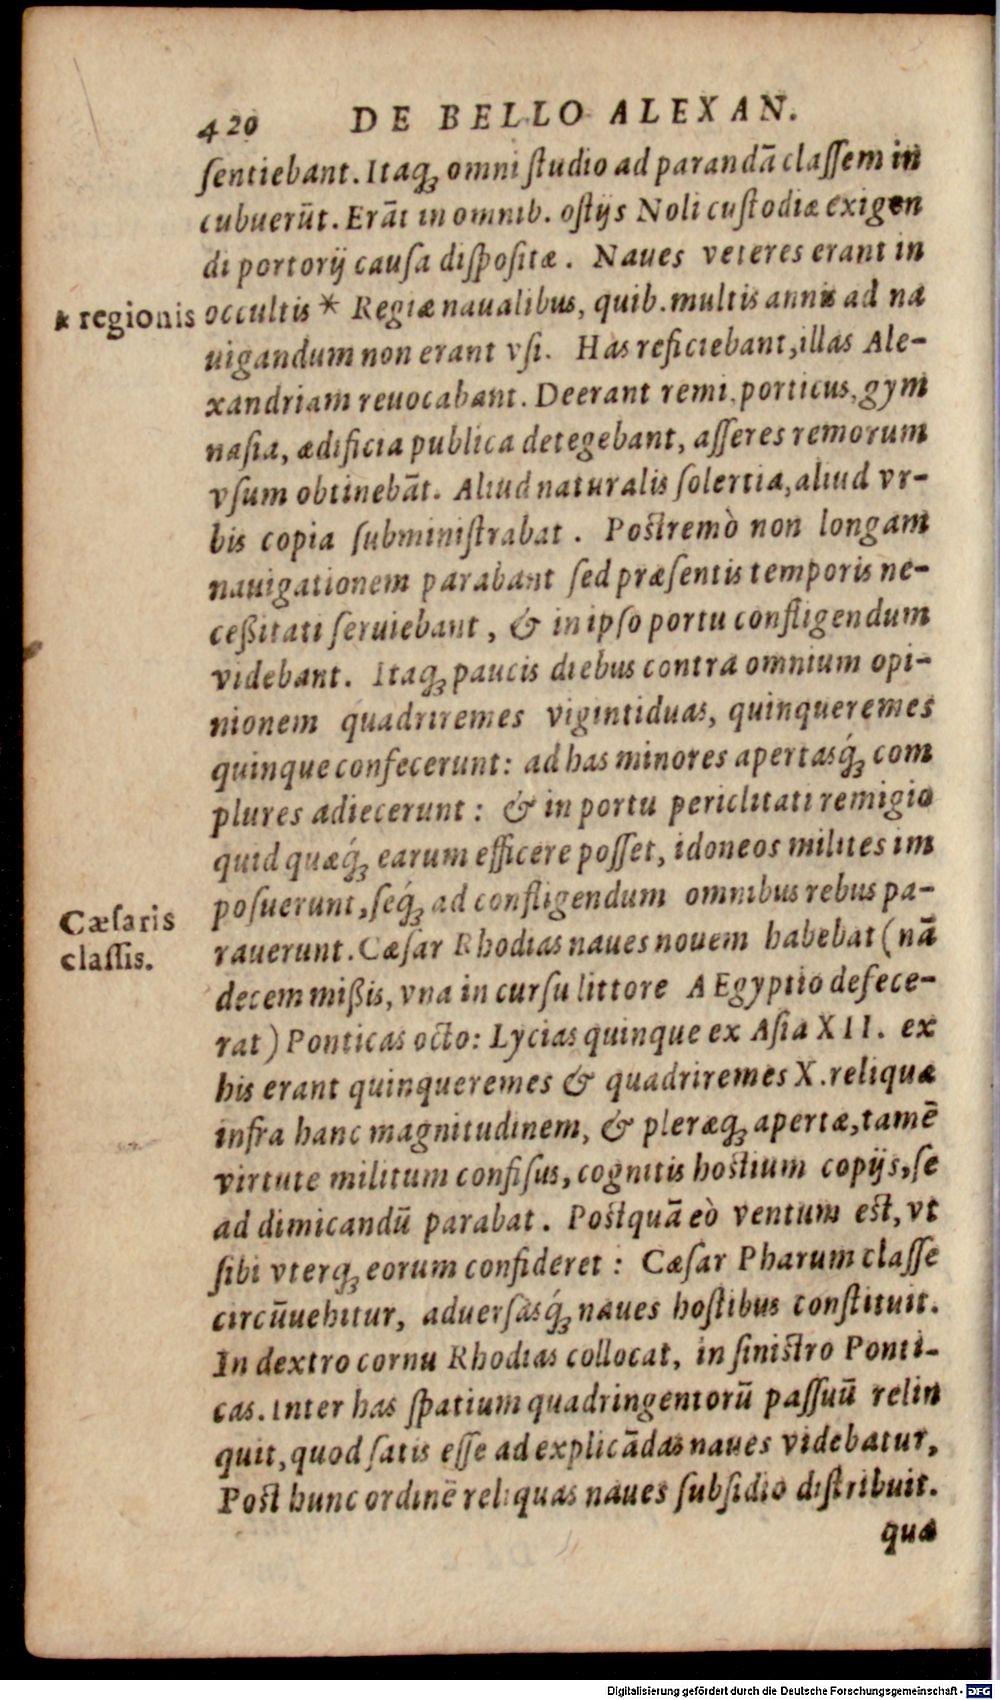 420 DE BELLO ALEXAN.
ſentiebant. Itaq́; omni ſtudio ad parandā claſſem in
cubuerūt. Erāt in omnib. oſtijs Noli cuſtodiæ exigen
di portorij cauſa diſpoſitæ. Naues veteres erant in
* regionis
occultis * Regiæ naualibus, quib. multis annis ad na
uigandum non erant vſi. Has reficiebant, illas Ale-
xandriam reuocabant. Deerant remi, porticus, gym
naſia, ædificia publica detegebant, aſſeres remorum
vſum obtinebāt. Aliud naturalis ſolertia, aliud vr-
bis copia ſubminiſtrabat. Poſtremò non longam
nauigationem parabant ſed præſentis temporis ne-
ceßitati ſeruiebant, & in ipſo portu confligendum
videbant. Itaq; paucis diebus contra omnium opi-
nionem quadriremes vigintiduas, quinqueremes
quinque confecerunt: ad has minores apertasq́; com
plures adiecerunt: & in portu periclitati remigio
quid quæq́; earum efficere poſſet, idoneos milites im
poſuerunt, ſeq́; ad confligendum omnibus rebus pa-
Cæſaris
claſſis.
rauerunt. Cæſar Rhodias naues nouem habebat (nā
decem mißis, vna in curſu littore AEgyptio defece-
rat) Ponticas octo: Lycias quinque ex Aſia XII. ex
his erant quinqueremes & quadriremes X. reliquæ
infra hanc magnitudinem, & pleræq; apertæ, tamē
virtute militum confiſus, cognitis hoſtium copijs, ſe
ad dimicandū parabat. Poſtquā eò ventum eſt, vt
ſibi vterq; eorum confideret: Cæſar Pharum claſſe
circūuehitur, aduerſasq́; naues hoſtibus conſtituit.
In dextro cornu Rhodias collocat, in ſiniſtro Ponti-
cas. Inter has ſpatium quadringentorū paſſuū relin
quit, quod ſatis eſſe ad explicādas naues videbatur.
Poſt hunc ordinē reliquas naues ſubſidio diſtribuit.
quæ
Digitalisierung gefördert durch die Deutsche Forschungsgemeinschaft - DFG